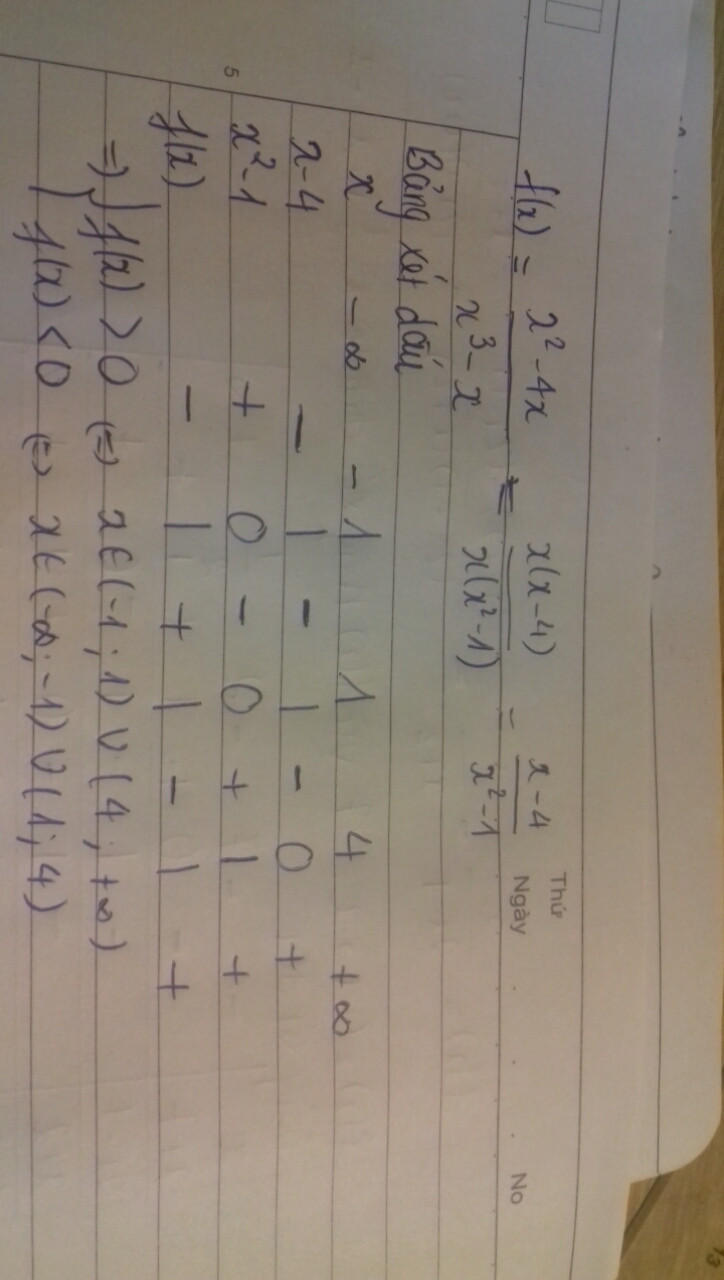 Thứ
Ngày . . . No
f(x) = x² - 4x / x³ - x = x(x-4) / x(x²-1) = x-4 / x²-1
Bảng xét dấu
x -∞ -1 1 4 +∞
x-4 - | - | - 0 +
x²-1 + 0 - 0 + | +
5
f(x) - | + | - | +
=> { f(x) > 0 (=) x ∈ (-1; 1) ∪ (4; +∞)
f(x) < 0 (=) x ∈ (-∞; -1) ∪ (1; 4)